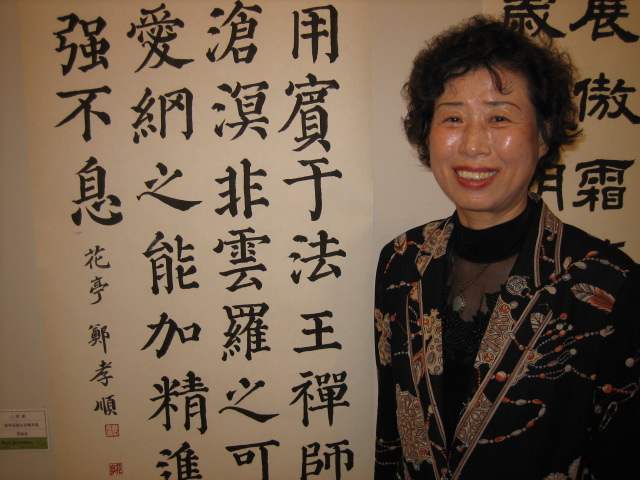 展傲霜
歲
用賓于法王禪師
滄溟非雲羅之可
愛網之能加精進
强不息
花亭 鄭孝順